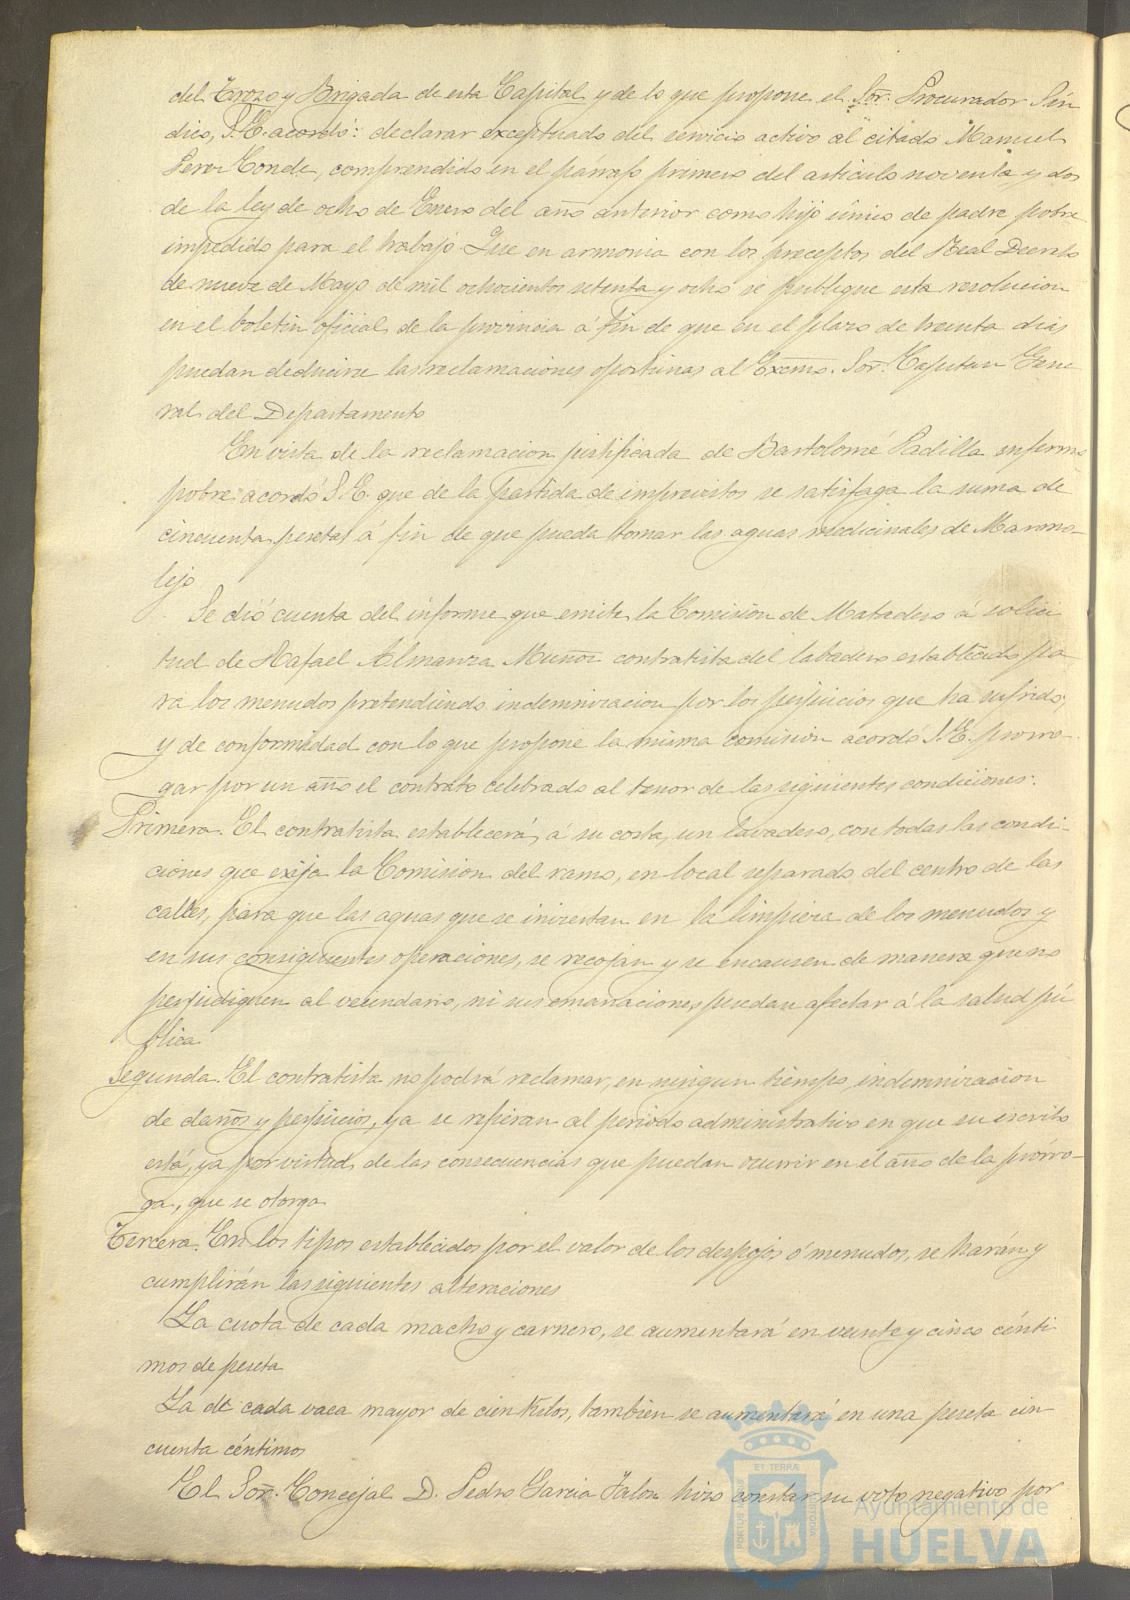 del Trozo y Brigada de esta Capital y de lo que propone el Sor. Procurador Sín
dico, S. E. acordó: declarar exceptuado del servicio activo al citado Manuel
Pero Conde, comprendido en el párrafo primero del artículo noventa y dos
de la ley de ocho de Enero del año anterior como hijo único de padre pobre
impedido para el trabajo. Que en armonia con los preceptos del Real Decreto
de nueve de Mayo de mil ochocientos setenta y ocho se publique esta resolucion
en el boletin oficial de la provincia á fin de que en el plazo de treinta dias
puedan deducirse las reclamaciones oportunas al Excmo. Sor. Capitan Gene
ral del Departamento
En vista de la reclamacion justificada de Bartolomé Padilla enfermo
pobre acordó S. E. que de la partida de imprevistos se satisfaga la suma de
cincuenta pesetas á fin de que pueda tomar las aguas medicinales de Marmo-
lejo
Se dió cuenta del informe que emite la Comisión de Matadero á solici
tud de Rafael Almanza Muñoz contratista del labadero establecido pa-
ra los menudos pretendiendo indemnizacion por los perjuicios que ha sufrido;
y de conformidad con lo que propone la misma comisión acordó S. E. prorro-
gar por un año el contrato celebrado al tenor de las siguientes condiciones:
Primera. El contratista establecerá, á su costa, un lavadero, con todas las condi-
ciones que exija la Comision del ramo, en local separado del centro de las
calles, para que las aguas que se inviertan en la limpieza de los menudos y
en sus consiguientes operaciones, se recojan y se encausen de manera que no
perjudiquen al vecindario, ni sus emanaciones puedan afectar á la salud pú
blica.
Segunda. El contratista no podrá reclamar, en ningun tiempo, indemnizacion
de daños y perjuicios, ya se refieran al periodo administrativo en que su escrito
está, ya por virtud de las consecuencias que puedan ocurrir en el año de la prórro-
ga, que se otorga
Tercera. En los tipos establecidos por el valor de los despojos ó menudos, se harán y
cumplirán las siguientes alteraciones
La cuota de cada macho y carnero, se aumentará en veinte y cinco cénti
mos de peseta
La de cada vaca mayor de cien kilos, tambien se aumentará en una peseta cin
cuenta céntimos
El Sor. Concejal D. Pedro Garcia Jalon hizo constar su voto negativo por
ET TERRA
Ayuntamiento de
HUELVA